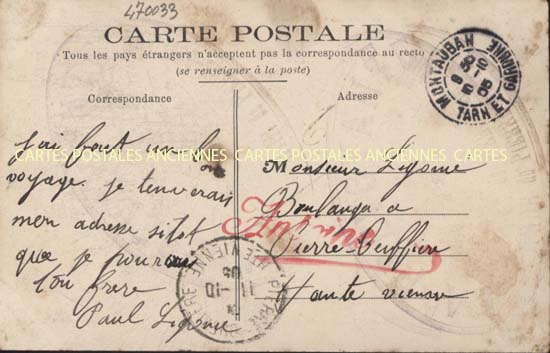 470033
CARTE POSTALE
Tous les pays étrangers n'acceptent pas la correspondance au recto
(se renseigner à la poste)
Correspondance
Adresse
MONTAUBAN
TARN ET GARONNE
j'ai fait un bon
voyage. je tenverai
mon adresse sitot
que je pourai
ton frere
Paul
CARTES POSTALES ANCIENNES CARTES POSTALES ANCIENNES CARTES
Monsieur
Boulanger a
Pierre-Buffiere
haute vienne
PIERRE BUFFIERE
HTE VIENNE